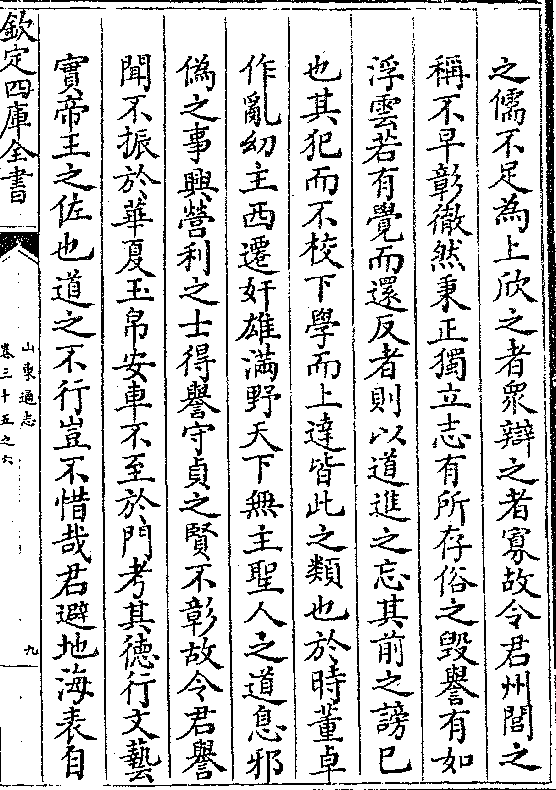 之儒不足為上欣之者眾辯之者寡故令君州閭之
稱不早彰徹然秉正獨立志有所存俗之毀譽有如
浮雲若有覺而還反者則以道進之忘其前之謗已
也其犯而不校下學而上達皆此之類也於時董卓
作亂幼主西遷奸雄滿野天下無主聖人之道息邪
偽之事興營利之士得譽守貞之賢不彰故令君譽
聞不振於華夏玉帛安車不至於門考其德行文藝
實帝王之佐也道之不行豈不惜哉君避地海表自
欽定四庫全書
山東通志
卷三十五之六
九